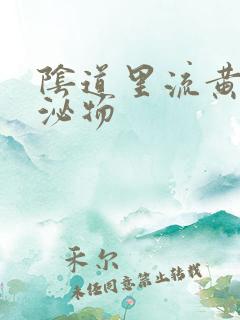 陰道里流黄
泌物
禾尔
未经同意禁止转载